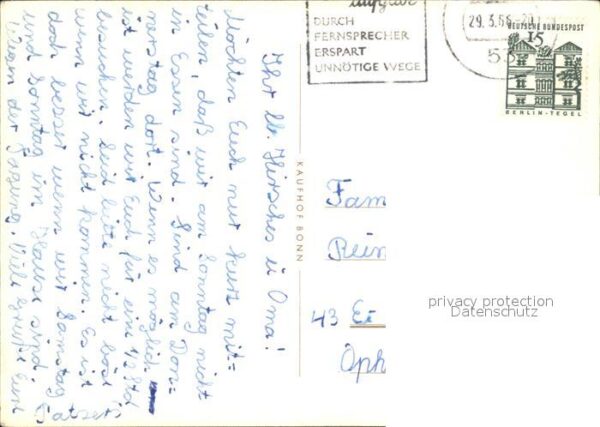 Ihr lb. Hirsches u Oma!
Möchten Euch nur kurz mit=
teilen, daß wir am Sonntag nicht
in Essen sind. Sind am Don=
nerstag dort. Wenn es möglich
ist werden wir Euch für ein 1/2 Std
besuchen. Seid bitte nicht böse
wenn wir nicht kommen. Es ist
doch besser wenn wir Samstag
und Sonntag im Hause sind
wegen der Tagung. Viele Grüße Eure
KAUFHOF BONN
DURCH
FERNSPRECHER
ERSPART
UNNÖTIGE WEGE
29.3.66
53
DEUTSCHE BUNDESPOST
15
BERLIN-TEGEL
Fam
Rein
43 E
Oph
privacy protection
Datenschutz